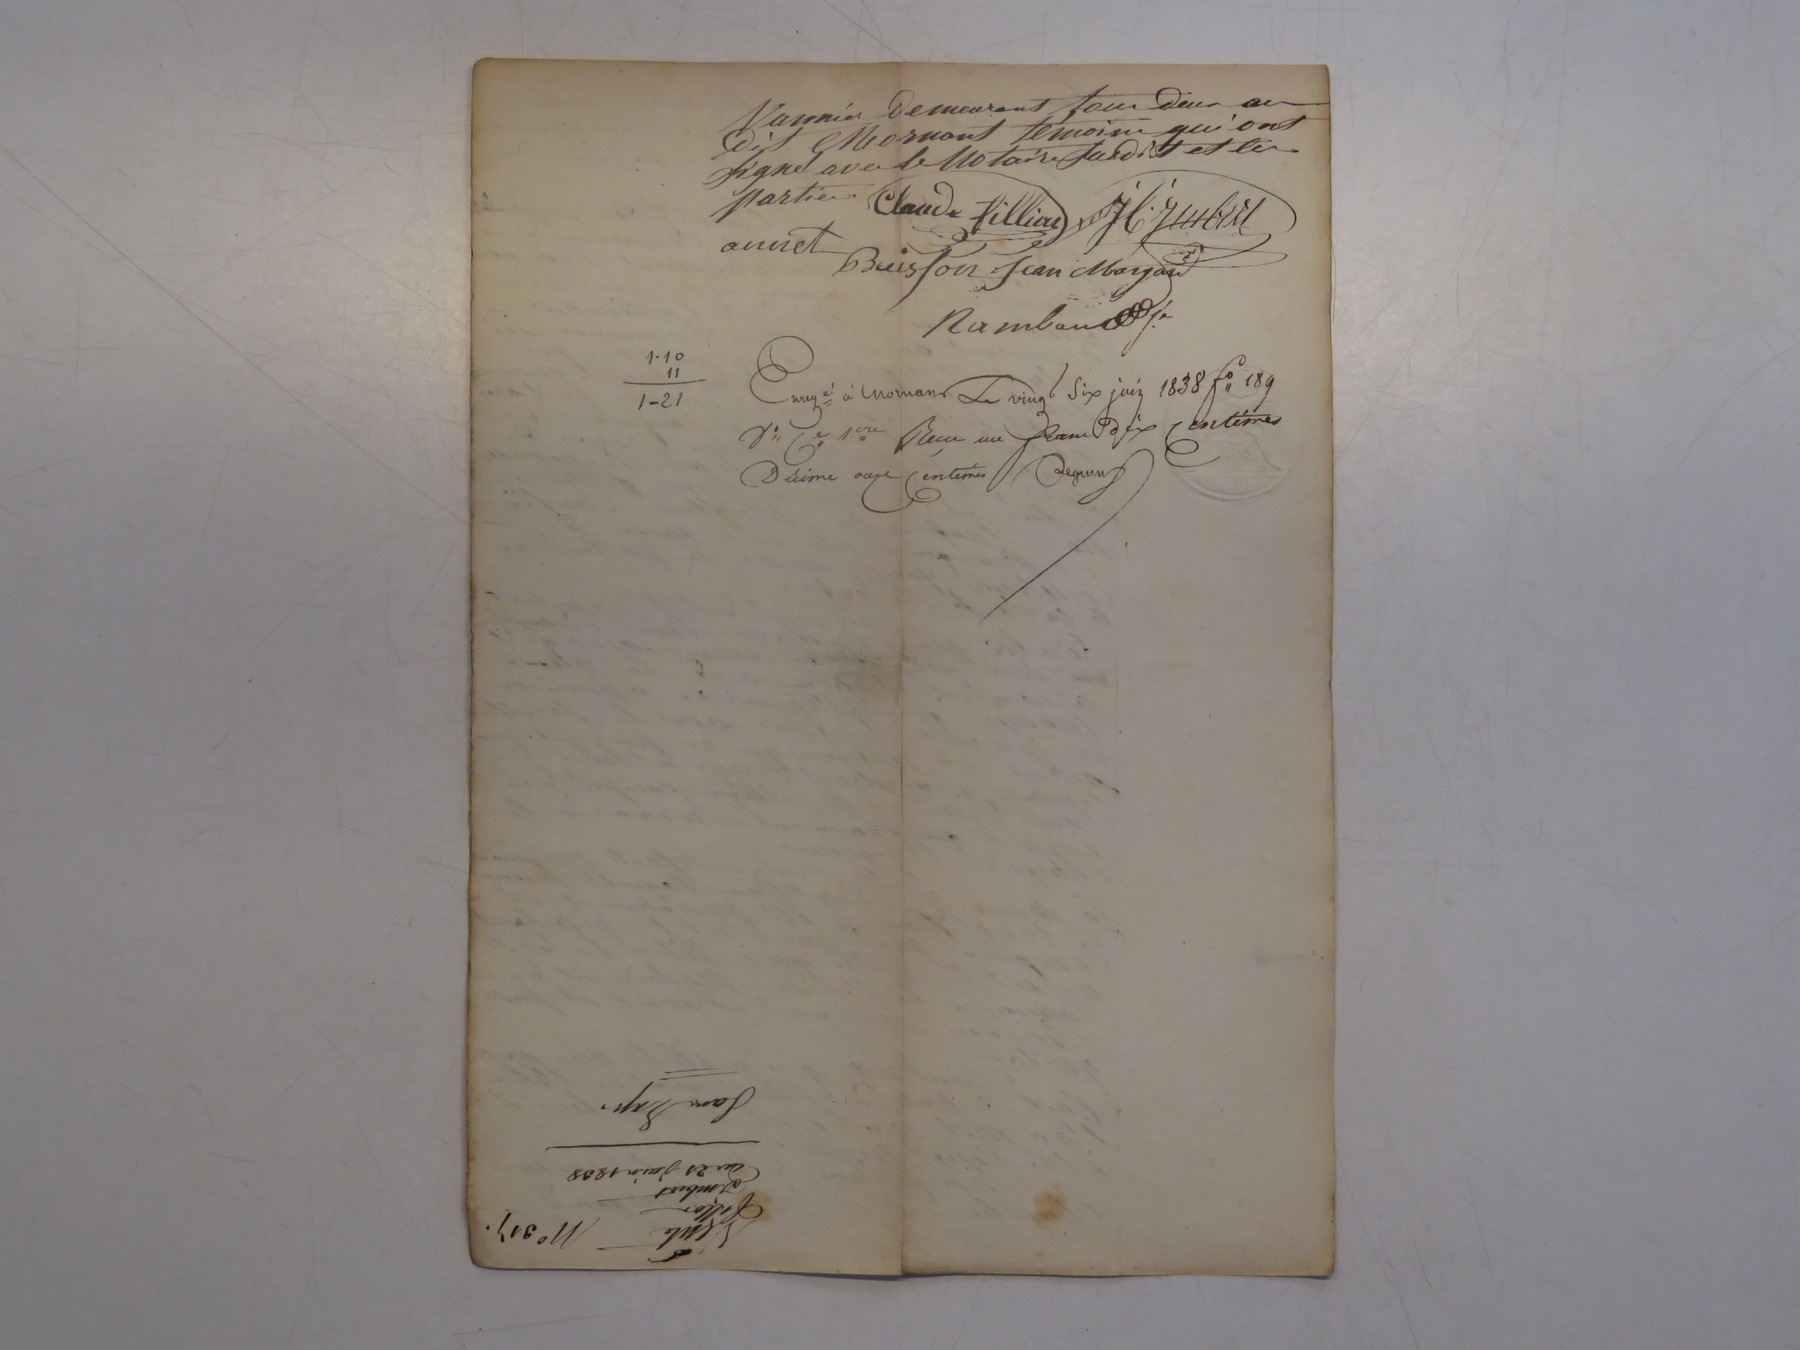 Vannier Demeurant tous Deux au
dit Mornant temoins qui ont
signé avec le Notaire susdit et les
parties Claude fillion J C Imbert
annet
Buisson Jean Marjan
Rambaud
1-10
11
1-21
Enregé à Mornant Le vingt Six juin 1838 f° 189
V° Ce 1ere Recu un franc Dix Centimes
Décime onze Centimes
N° 313.
Vente
fillion
Imbert
du 21 Juin 1838